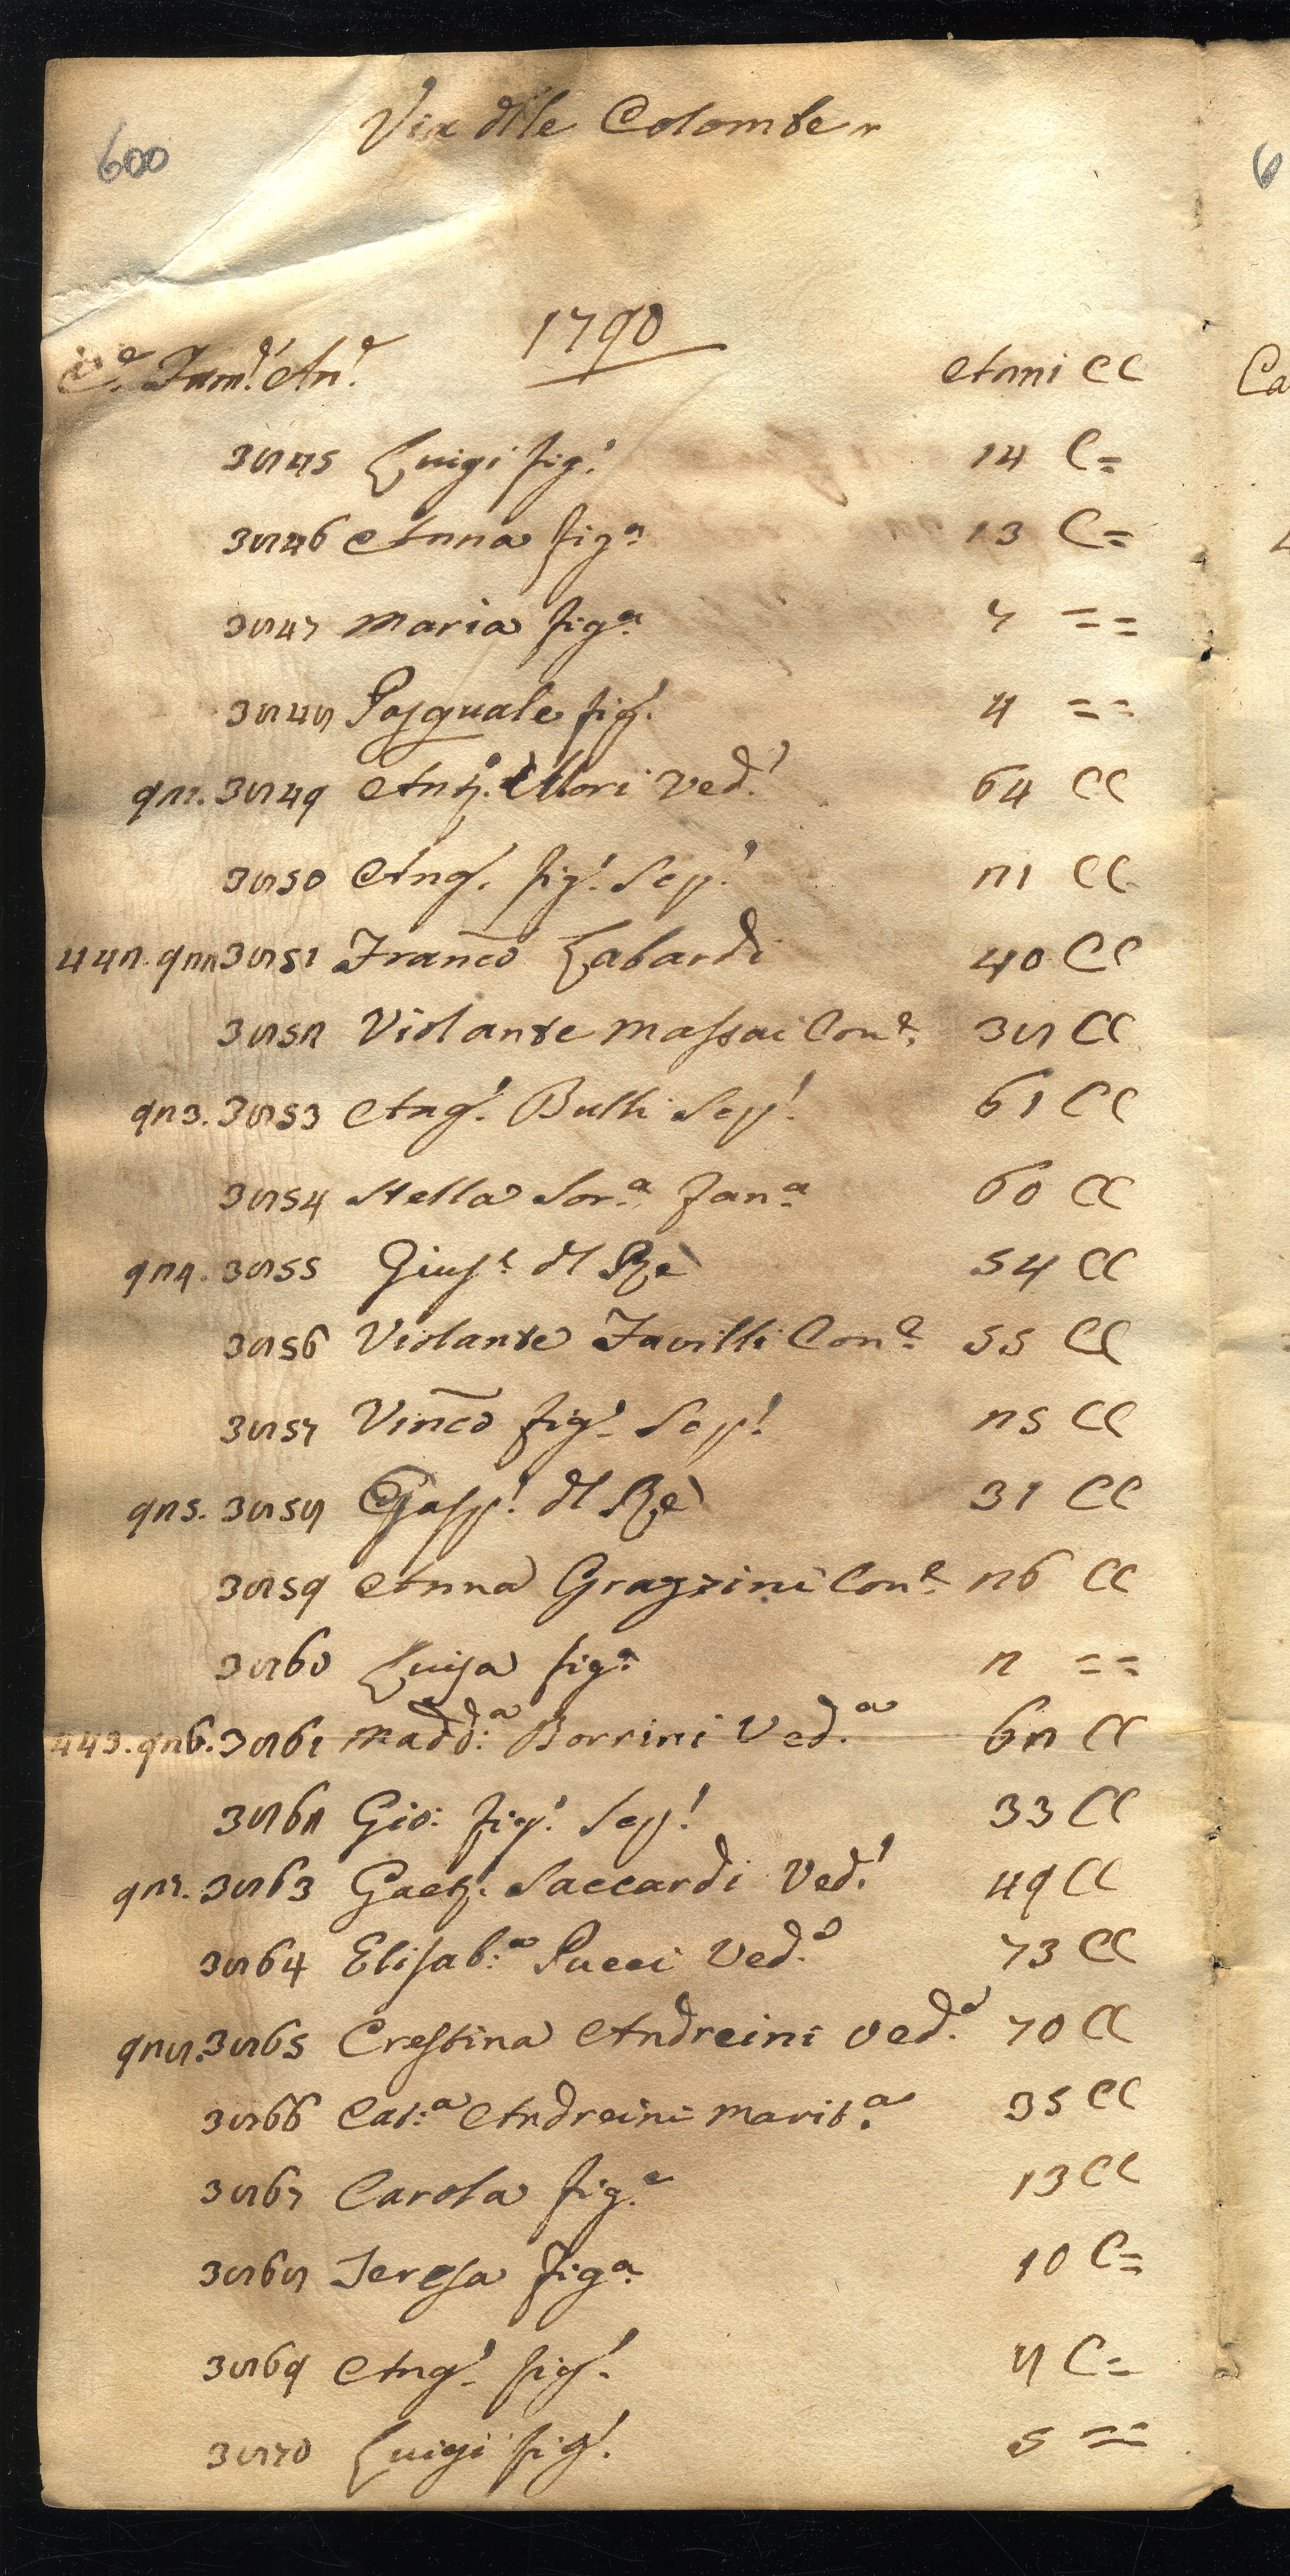 600
Via dlle Colombe 2
1790
C.e Fam.e An.e Anni CC
3845 Luigi fig.' 14 C=
3846 Anna fig.a 13 C=
3847 Maria fig.a 7 ==
3848 Pasquale fig.' 4 ==
921. 3849 Ant.o Mori Ved.' 64 CC
3850 Ang.' fig.' Sep.' 21 CC
442. 922 3851 Franco Labardi 40 CC
3852 Violante Massai Con.e 38 CC
923. 3853 Ang.' Bulli Sep.' 61 CC
3854 Stella Sor.a Fan.a 60 CC
924. 3855 Gius.e dl Rè 54 CC
3856 Violante Favilli Con.e 55 CC
3857 Vinco fig.' Sep.' 25 CC
925. 3858 Gasp.' dl Rè 31 CC
3859 Anna Grazzini Con.e 26 CC
3860 Luisa fig.a 2 ==
443. 926. 3861 Madd:a Borrini Ved.a 62 CC
3862 Gio: fig.' Sep.' 33 CC
927. 3863 Gaet.o Saccardi Ved.' 49 CC
3864 Elisab:a Pucci Ved.a 73 CC
928. 3865 Crestina Andreini Ved.a 70 CC
3866 Cat:a Andreini Marit.a 35 CC
3867 Carola fig.a 13 CC
3868 Teresa Fig.a 10 C=
3869 Ang.' fig.' 8 C=
3870 Luigi fig.' 5 ==